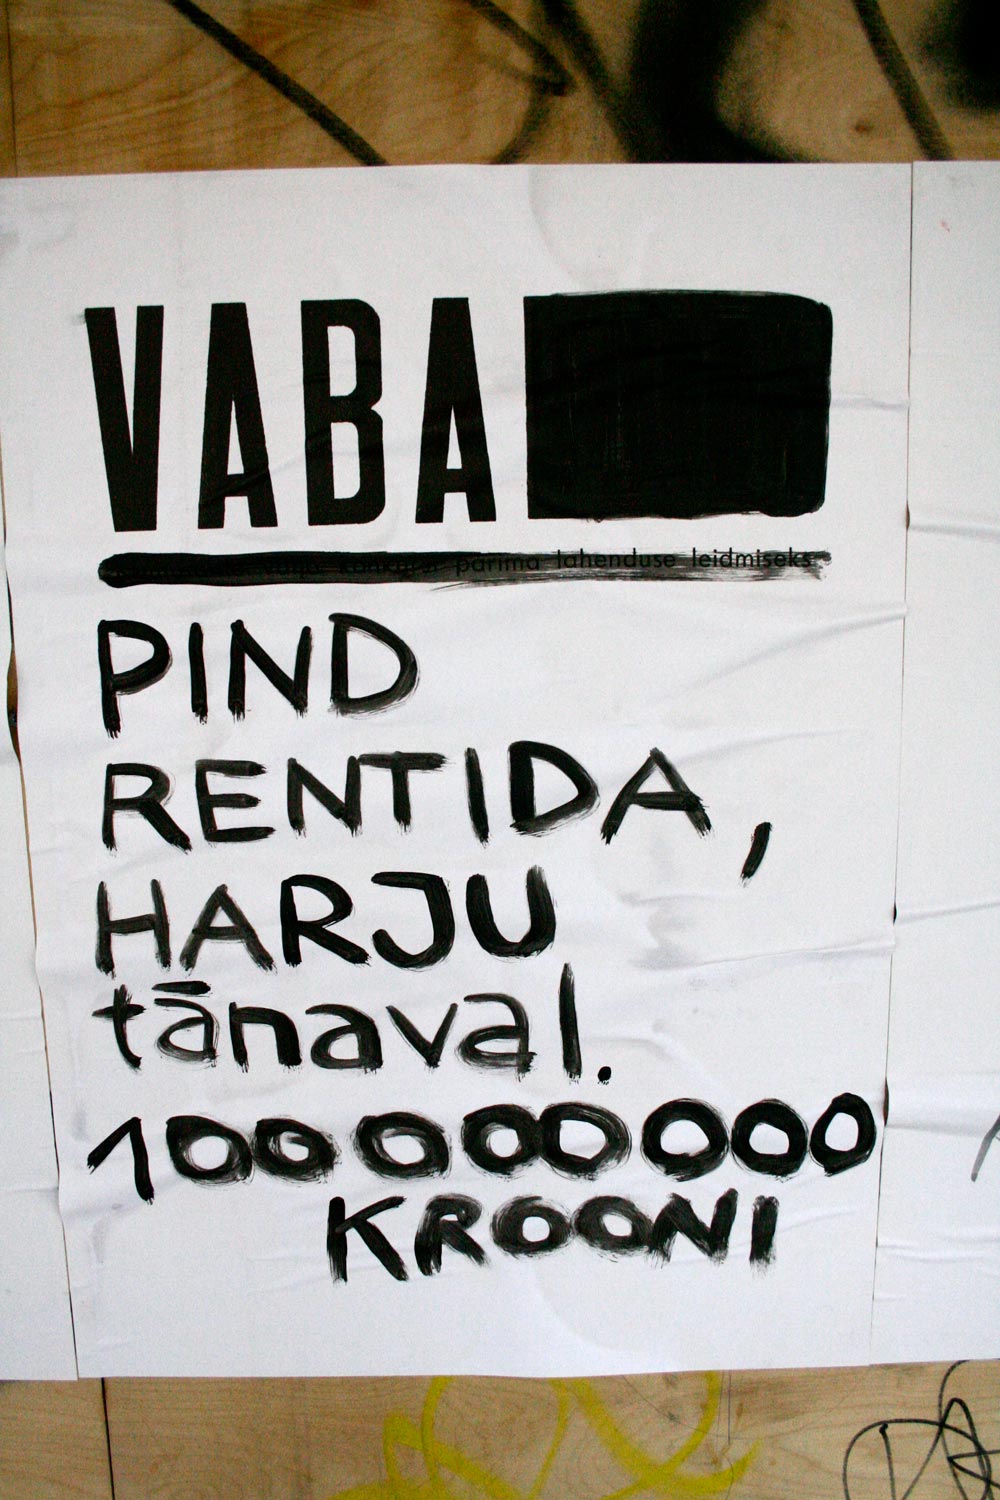 VABA
parima lahenduse leidmiseks
PIND
RENTIDA,
HARJU
tānaval.
100 000 000
KROONI